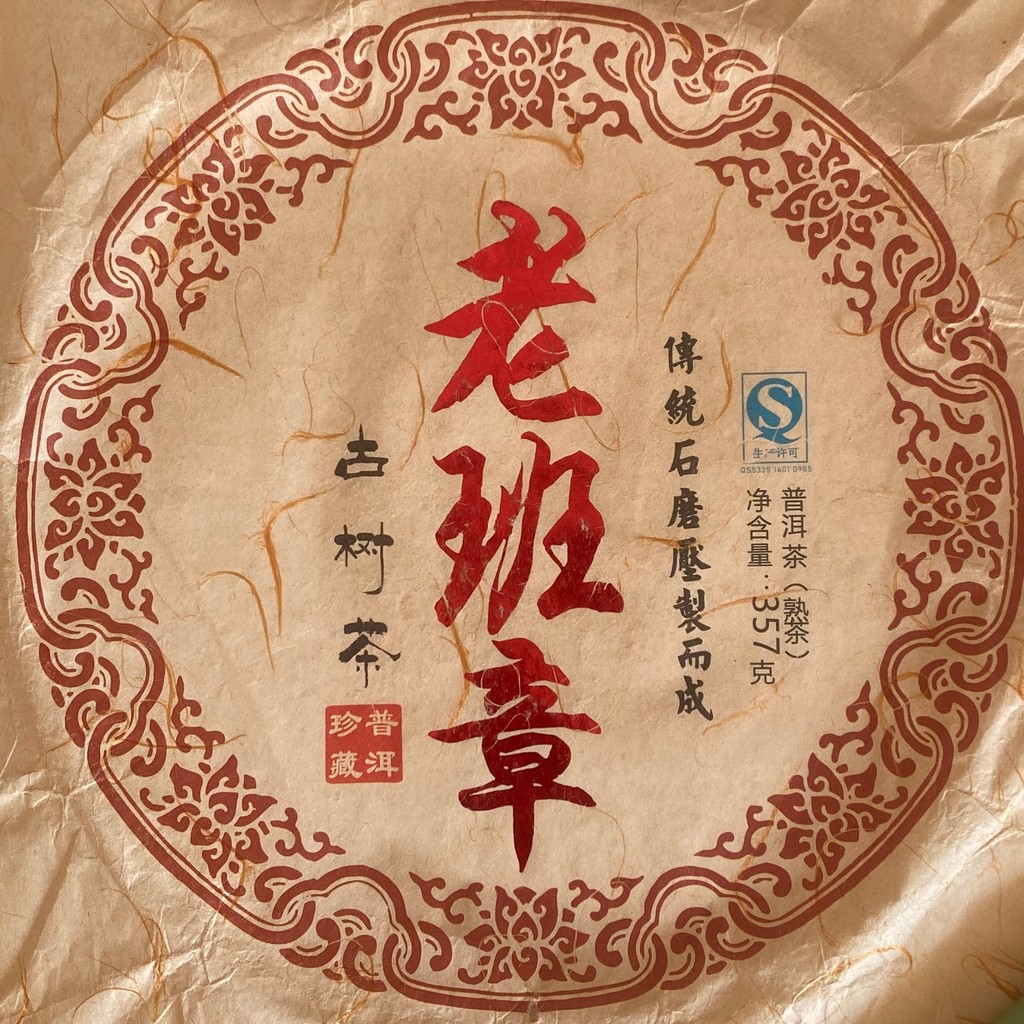 普洱茶（熟茶）
净含量：357克
S
生产许可
QS5335 1401 0985
傳統石磨壓製而成
老班章
古树茶
普洱
珍藏